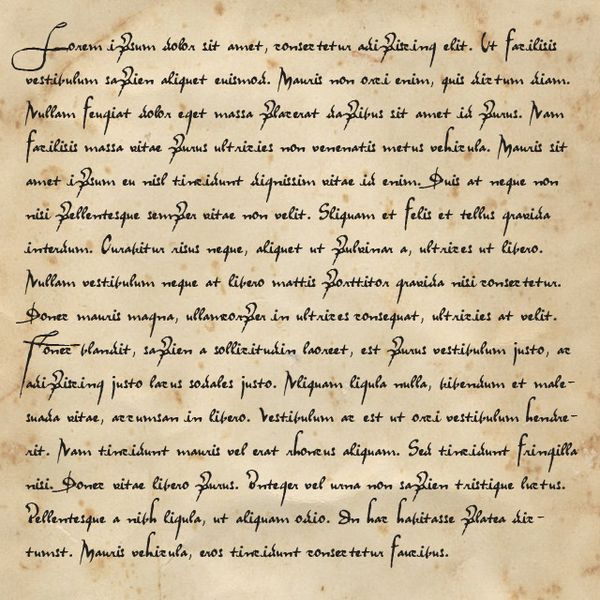 Lorem ipsum dolor sit amet, consectetur adipiscing elit. Ut facilisis
vestibulum sapien aliquet euismod. Mauris non orci enim, quis dictum diam.
Nullam feugiat dolor eget massa placerat dapibus sit amet id purus. Nam
facilisis massa vitae purus ultricies non venenatis metus vehicula. Mauris sit
amet ipsum eu nisl tincidunt dignissim vitae id enim. Duis at neque non
nisi pellentesque semper vitae non velit. Aliquam et felis et tellus gravida
interdum. Curabitur risus neque, aliquet ut pulvinar a, ultrices ut libero.
Nullam vestibulum neque at libero mattis porttitor gravida nisi consectetur.
Donec mauris magna, ullamcorper in ultrices consequat, ultricies at velit.
Fonec blandit, sapien a sollicitudin laoreet, est purus vestibulum justo, ac
adipiscing justo lacus sodales justo. Aliquam ligula nulla, bibendum et male-
suada vitae, accumsan in libero. Vestibulum ac est ut orci vestibulum hendre-
rit. Nam tincidunt mauris vel erat rhoncus aliquam. Sed tincidunt fringilla
nisi. Donec vitae libero purus. Integer vel urna non sapien tristique luctus.
Pellentesque a nibh ligula, ut aliquam odio. In hac habitasse platea dic-
tumst. Mauris vehicula, eros tincidunt consectetur faucibus.